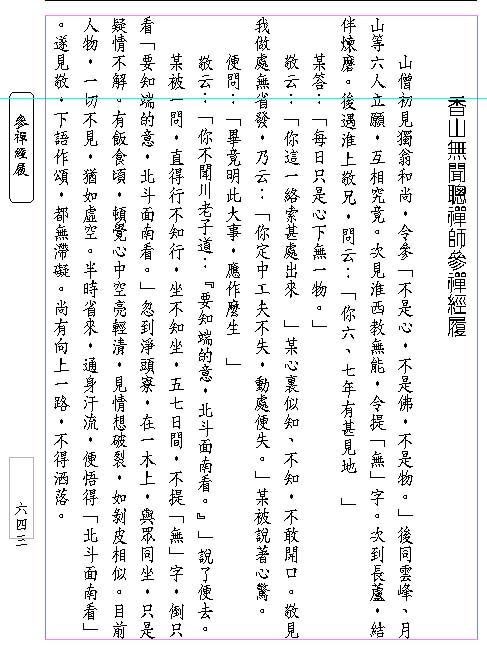 香山無聞聰禪師參禪經歷
山僧初見獨翁和尚，令參「不是心，不是佛，不是物。」後同雲峰、月
山等六人立願，互相究竟。次見淮西教無能，令提「無」字。次到長蘆，結
伴煉磨。後遇淮上敬兄，問云：「你六、七年有甚見地　」
某答：「每日只是心下無一物。」
敬云：「你這一絡索甚處出來　」某心裏似知、不知，不敢開口。敬見
我做處無省發，乃云：「你定中工夫不失，動處便失。」某被說著心驚。
便問：「畢竟明此大事，應作麼生　」
敬云：「你不聞川老子道：『要知端的意，北斗面南看。』」說了便去。
某被一問，直得行不知行，坐不知坐，五七日間，不提「無」字，倒只
看「要知端的意，北斗面南看。」忽到淨頭寮，在一木上，與眾同坐，只是
疑情不解。有飯食頃，頓覺心中空亮輕清，見情想破裂，如剝皮相似。目前
人物，一切不見，猶如虛空。半時省來，通身汗流，便悟得「北斗面南看」
。遂見敬，下語作頌，都無滯礙。尚有向上一路，不得洒落。
參禪經歷
六四三